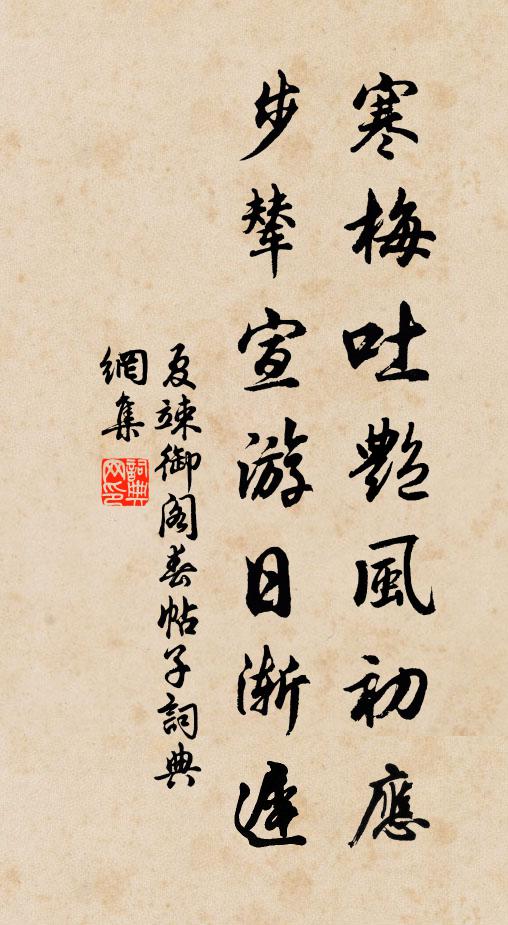 寒梅吐艷風初應
步輦宣游日漸遲
夏竦御閣春帖子詞典
網集
詞典網印